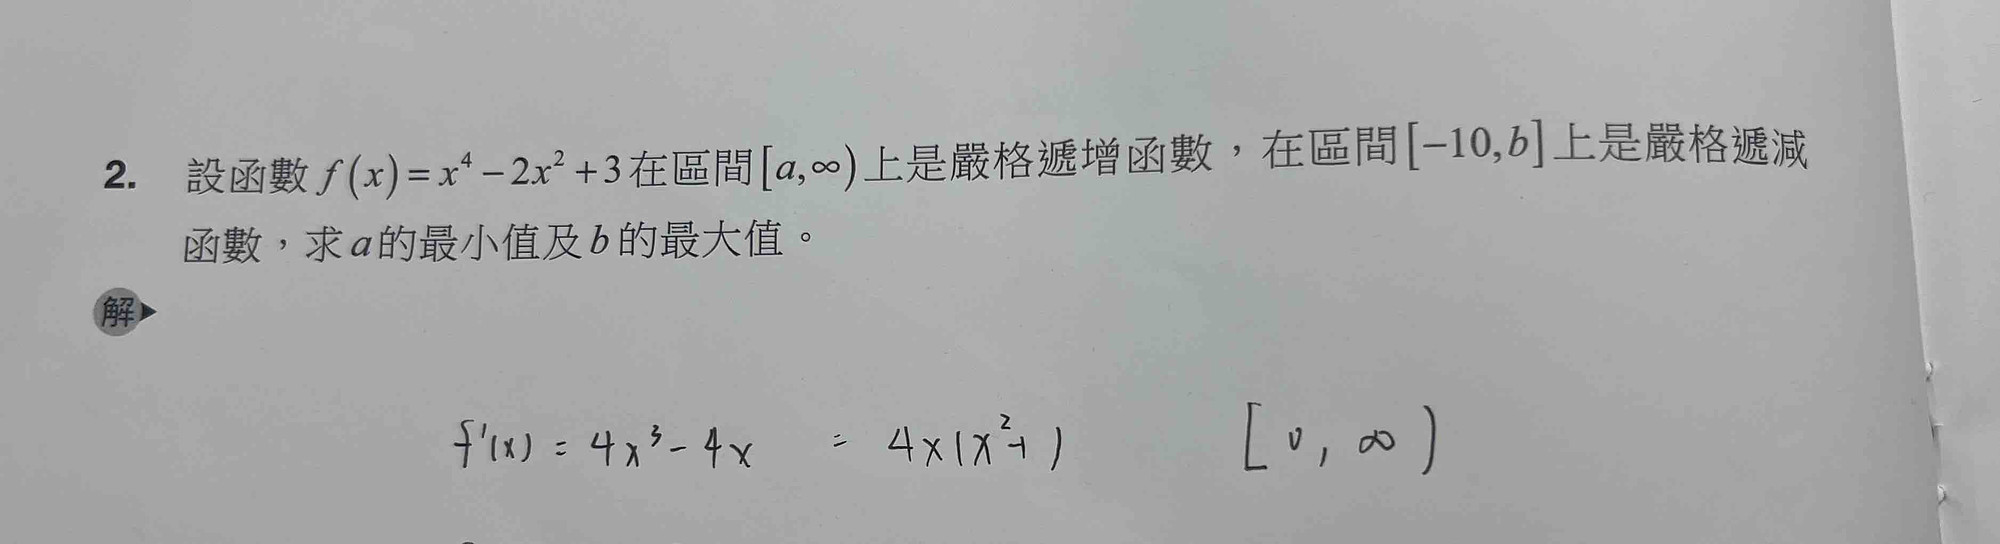 2. 設函數 f(x)=x⁴−2x²+3 在區間[a,∞)上是嚴格遞增函數，在區間[−10,b]上是嚴格遞減
函數，求a的最小值及b的最大值。
解
f'(x) = 4x³ − 4x = 4x(x²−1) [0, ∞)